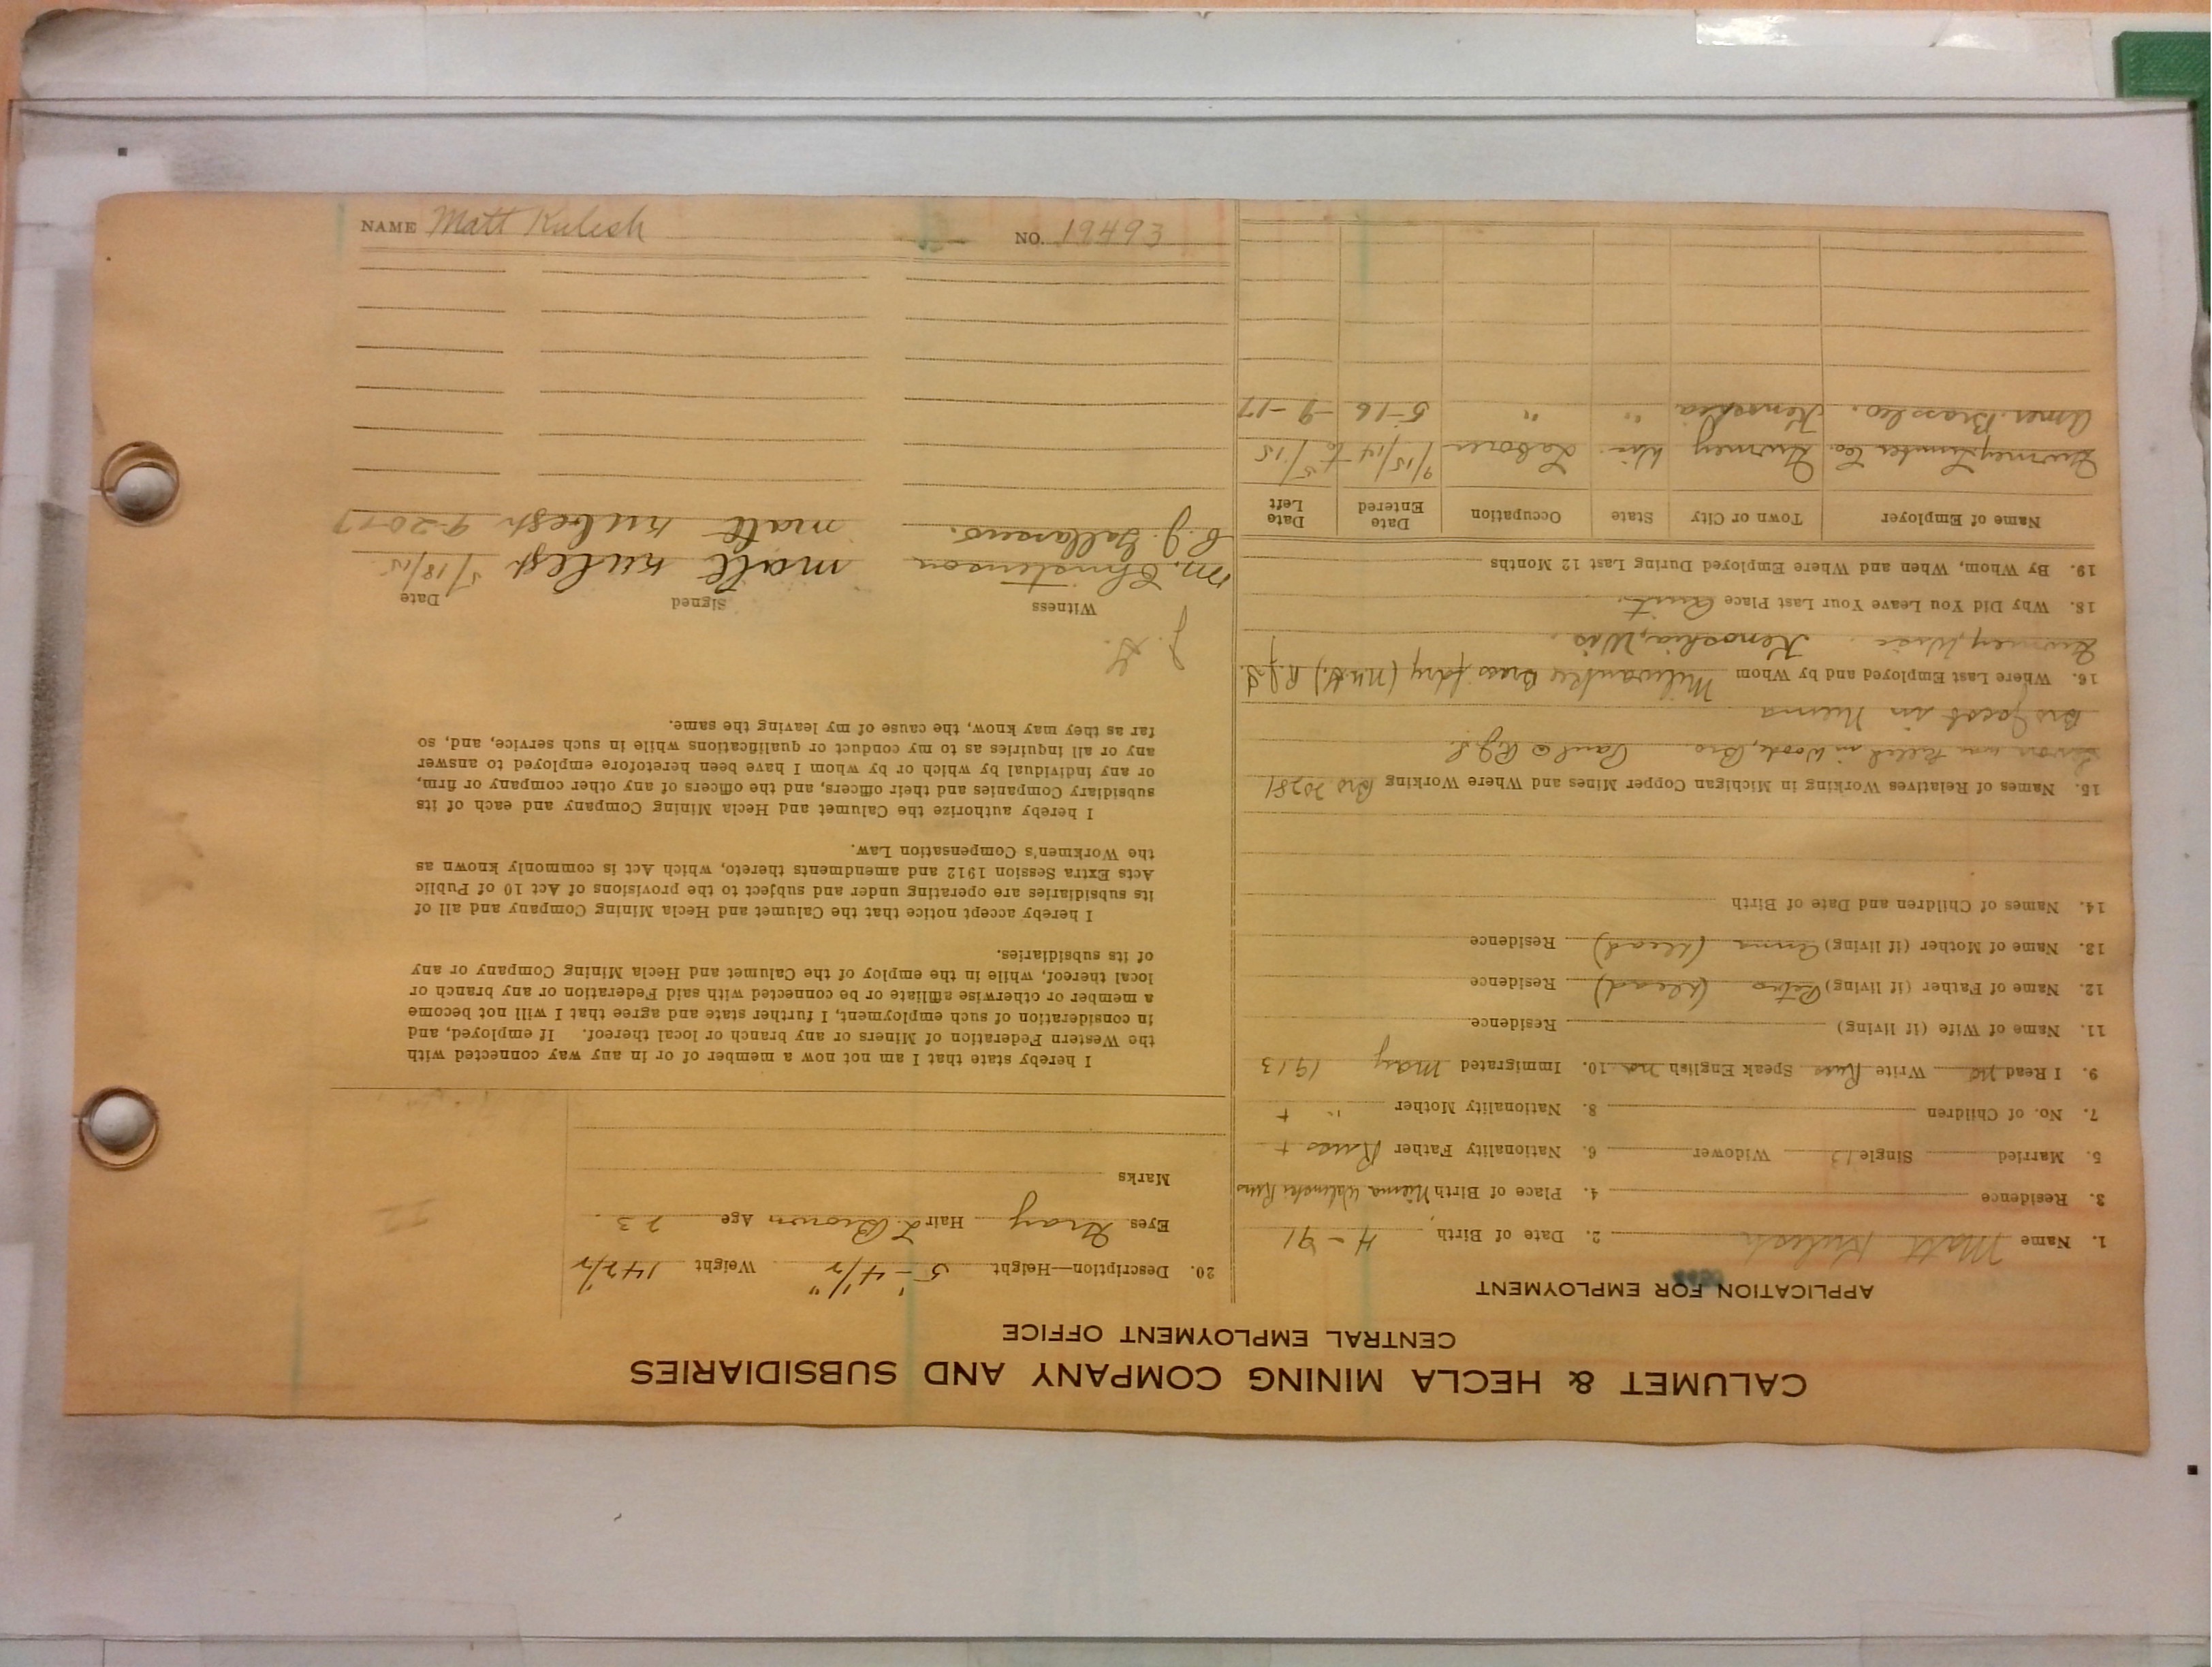 CALUMET & HECLA MINING COMPANY AND SUBSIDIARIES
CENTRAL EMPLOYMENT OFFICE
APPLICATION FOR EMPLOYMENT
1. Name Matt Kulesh 2. Date of Birth, 4 - 91
3. Residence 4. Place of Birth Russ
5. Married Single 6. Nationality Father Russ +
Widower
7. No. of Children 8. Nationality Mother " +
9. I Read no Write Russ Speak English no 10. Immigrated May 1913
11. Name of Wife (if living) Residence
12. Name of Father (if living) Petro (dead) Residence
13. Name of Mother (if living) Anna (dead) Residence
14. Names of Children and Date of Birth
15. Names of Relatives Working in Michigan Copper Mines and Where Working Bro 20281
killed in Woods, Bro Paul @ R.J.S.
Bro Jacob in
16. Where Last Employed and by Whom Milwaukee Brass fdry R.J.S.
Gurney, Wisc. Kenoshia, Wis.
18. Why Did You Leave Your Last Place Quit.
19. By Whom, When and Where Employed During Last 12 Months
Name of Employer Town or City State Occupation Date Entered Date Left
Gurney Lumber Co. Gurney Wis Laborer 9/15/14 to 5/15
Amer. Brass Co. Kenoshia " " 5-16 - 9-17
20. Description—Height 5'-4 1/2" Weight 142 1/2
Eyes Gray Hair L. Brown Age 23.
Marks
II
I hereby state that I am not now a member of or in any way connected with
the Western Federation of Miners or any branch or local thereof. If employed, and
in consideration of such employment, I further state and agree that I will not become
a member or otherwise affiliate or be connected with said Federation or any branch or
local thereof, while in the employ of the Calumet and Hecla Mining Company or any
of its subsidiaries.
I hereby accept notice that the Calumet and Hecla Mining Company and all of
its subsidiaries are operating under and subject to the provisions of Act 10 of Public
Acts Extra Session 1912 and amendments thereto, which Act is commonly known as
the Workmen's Compensation Law.
I hereby authorize the Calumet and Hecla Mining Company and each of its
subsidiary Companies and their officers, and the officers of any other company or firm,
or any individual by which or by whom I have been heretofore employed to answer
any or all inquiries as to my conduct or qualifications while in such service, and, so
far as they may know, the cause of my leaving the same.
Witness Signed Date
M. Christenson Matt Kulesh 5/18/15
Matt Kulesh 9-20-17
NAME Matt Kulesh NO. 19493